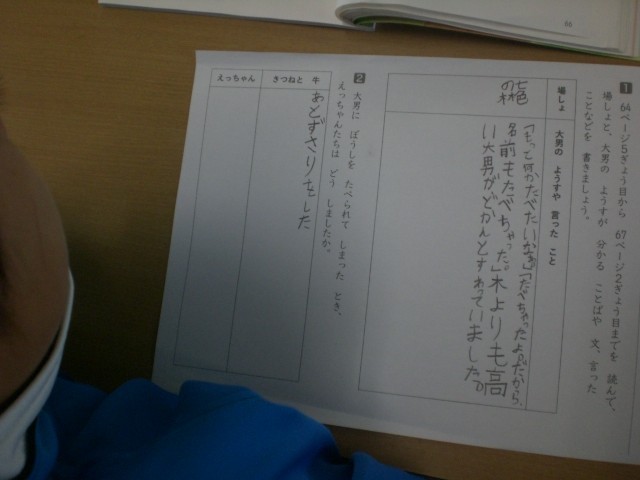 66
1 64ページ5ぎょう目から 67ページ2ぎょう目までを 読んで、
場しょと、大男の ようすが 分かる ことばや 文、言った
ことなどを 書きましょう。
場しょ
大男の ようすや 言った こと
七色
の林
「もっと何かたべたいなあ。」「たべちゃったよ。だから、
名前もたべちゃった。」木よりも高
い大男がどかんとすわっていました。
2 大男に ぼうしを たべられて しまった とき、
えっちゃんたちは どう しましたか。
きつねと 牛
あとずさりをした
えっちゃん